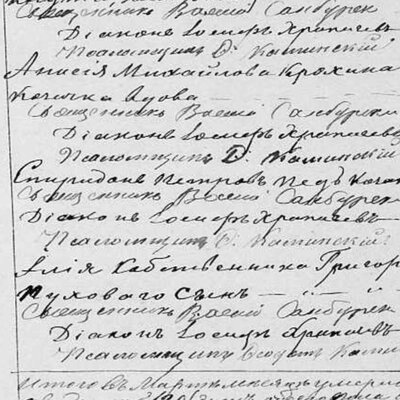 Священникъ Василій Самбурск
Діаконъ Іосифъ Храпачевъ
Псаломщикъ Ѳ. Каминскій
Анисія Михайлова Крохина
Козачка вдова
Священникъ Василій Самбурски
Діаконъ Іосифъ Храпачевъ
Псаломщикъ Ѳ. Каминскій
Спиридонъ Петровъ
Священникъ Василій Самбурск
Діаконъ Іосифъ Храпачевъ
Псаломщикъ Ѳ. Каминскій
Илія Собственника Григор
Пуховаго сынъ
Священникъ Василій Самбурск
Діаконъ Іосифъ Храпачевъ
Псаломщикъ Ѳеодотъ Ками
Итого въ Мартѣ мѣсяцѣ умерло